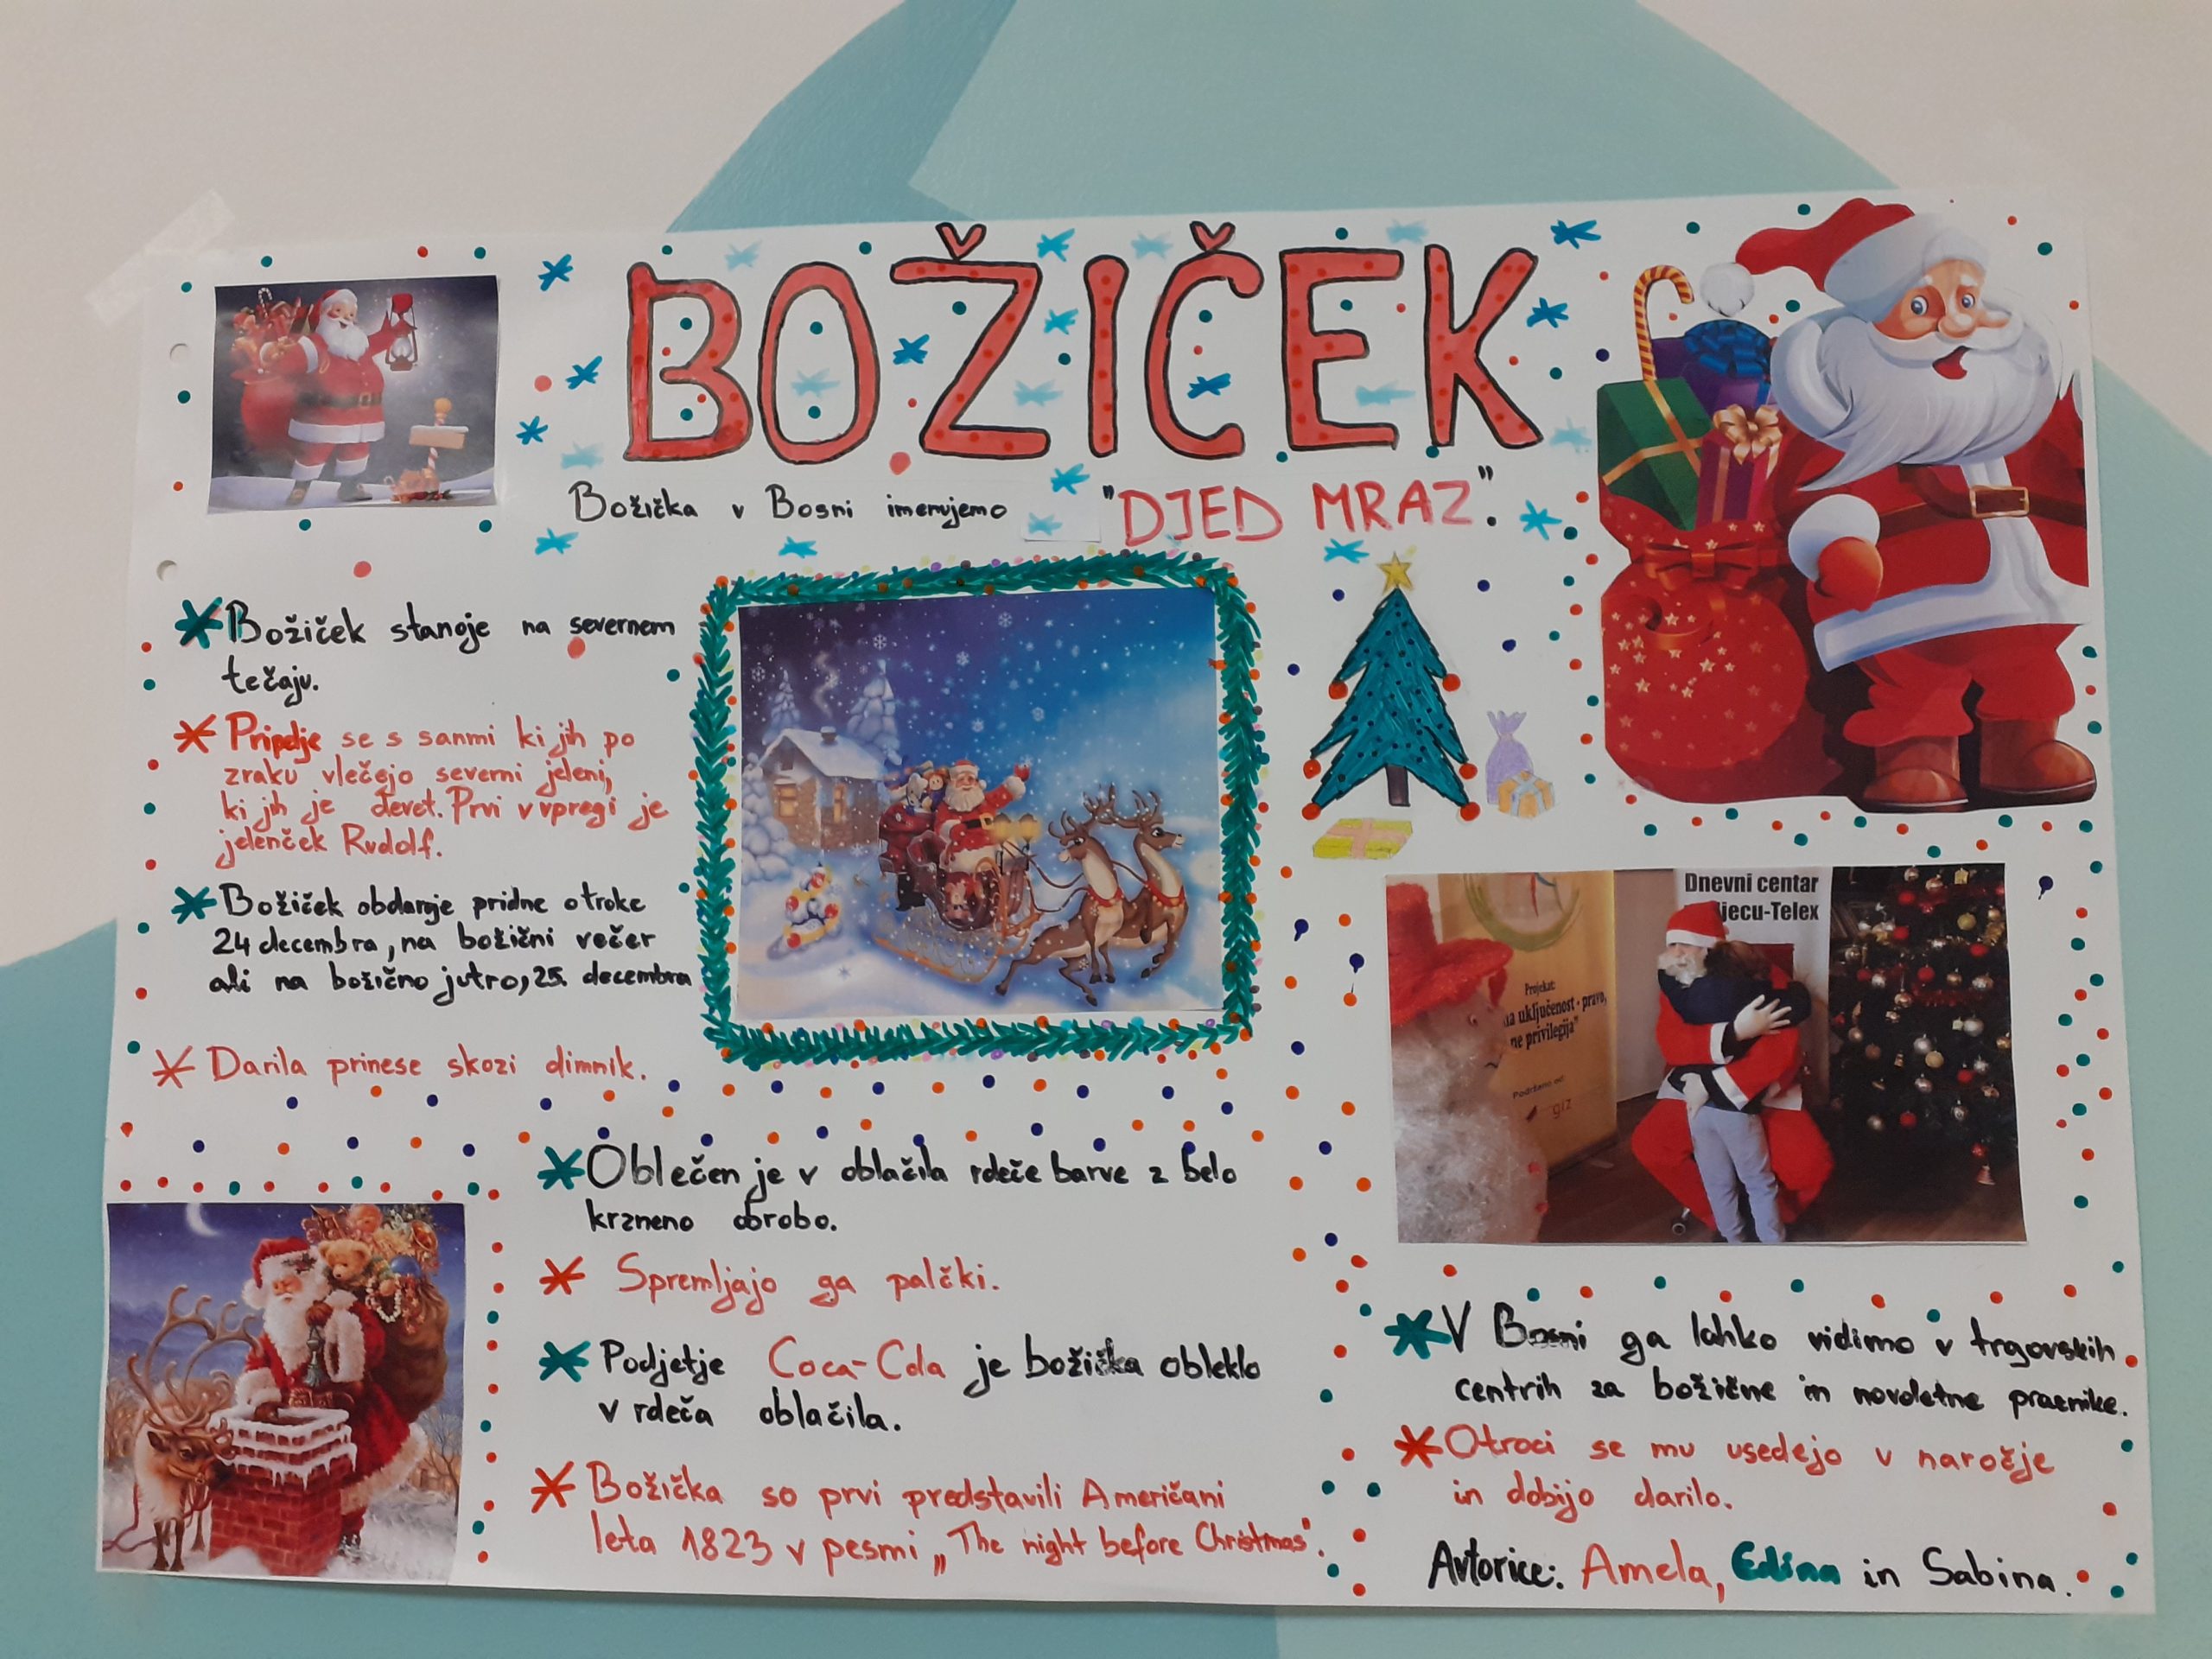 BOŽIČEK
Božička v Bosni imenujemo "DJED MRAZ".
Božiček stanuje na severnem
tečaju.
Pripelje se s sanmi ki jih po
zraku vlečejo severni jeleni,
ki jih je devet. Prvi v vpregi je
jelenček Rudolf.
Božiček obdaruje pridne otroke
24 decembra, na božični večer
ali na božično jutro, 25. decembra
Darila prinese skozi dimnik.
Oblečen je v oblačila rdeče barve z belo
krzneno obrobo.
Spremljajo ga palčki.
Podjetje Coca-Cola je božička obleklo
v rdeča oblačila.
Božička so prvi predstavili Američani
leta 1823 v pesmi „The night before Christmas".
Dnevni centar
jecu-Telex
Projekat:
uključenost - pravo,
ne privilegija"
Podržano od:
giz
V Bosni ga lahko vidimo v trgovskih
centrih za božične in novoletne praznike.
Otroci se mu usedejo v naročje
in dobijo darilo.
Avtorice: Amela, Edina in Sabina.